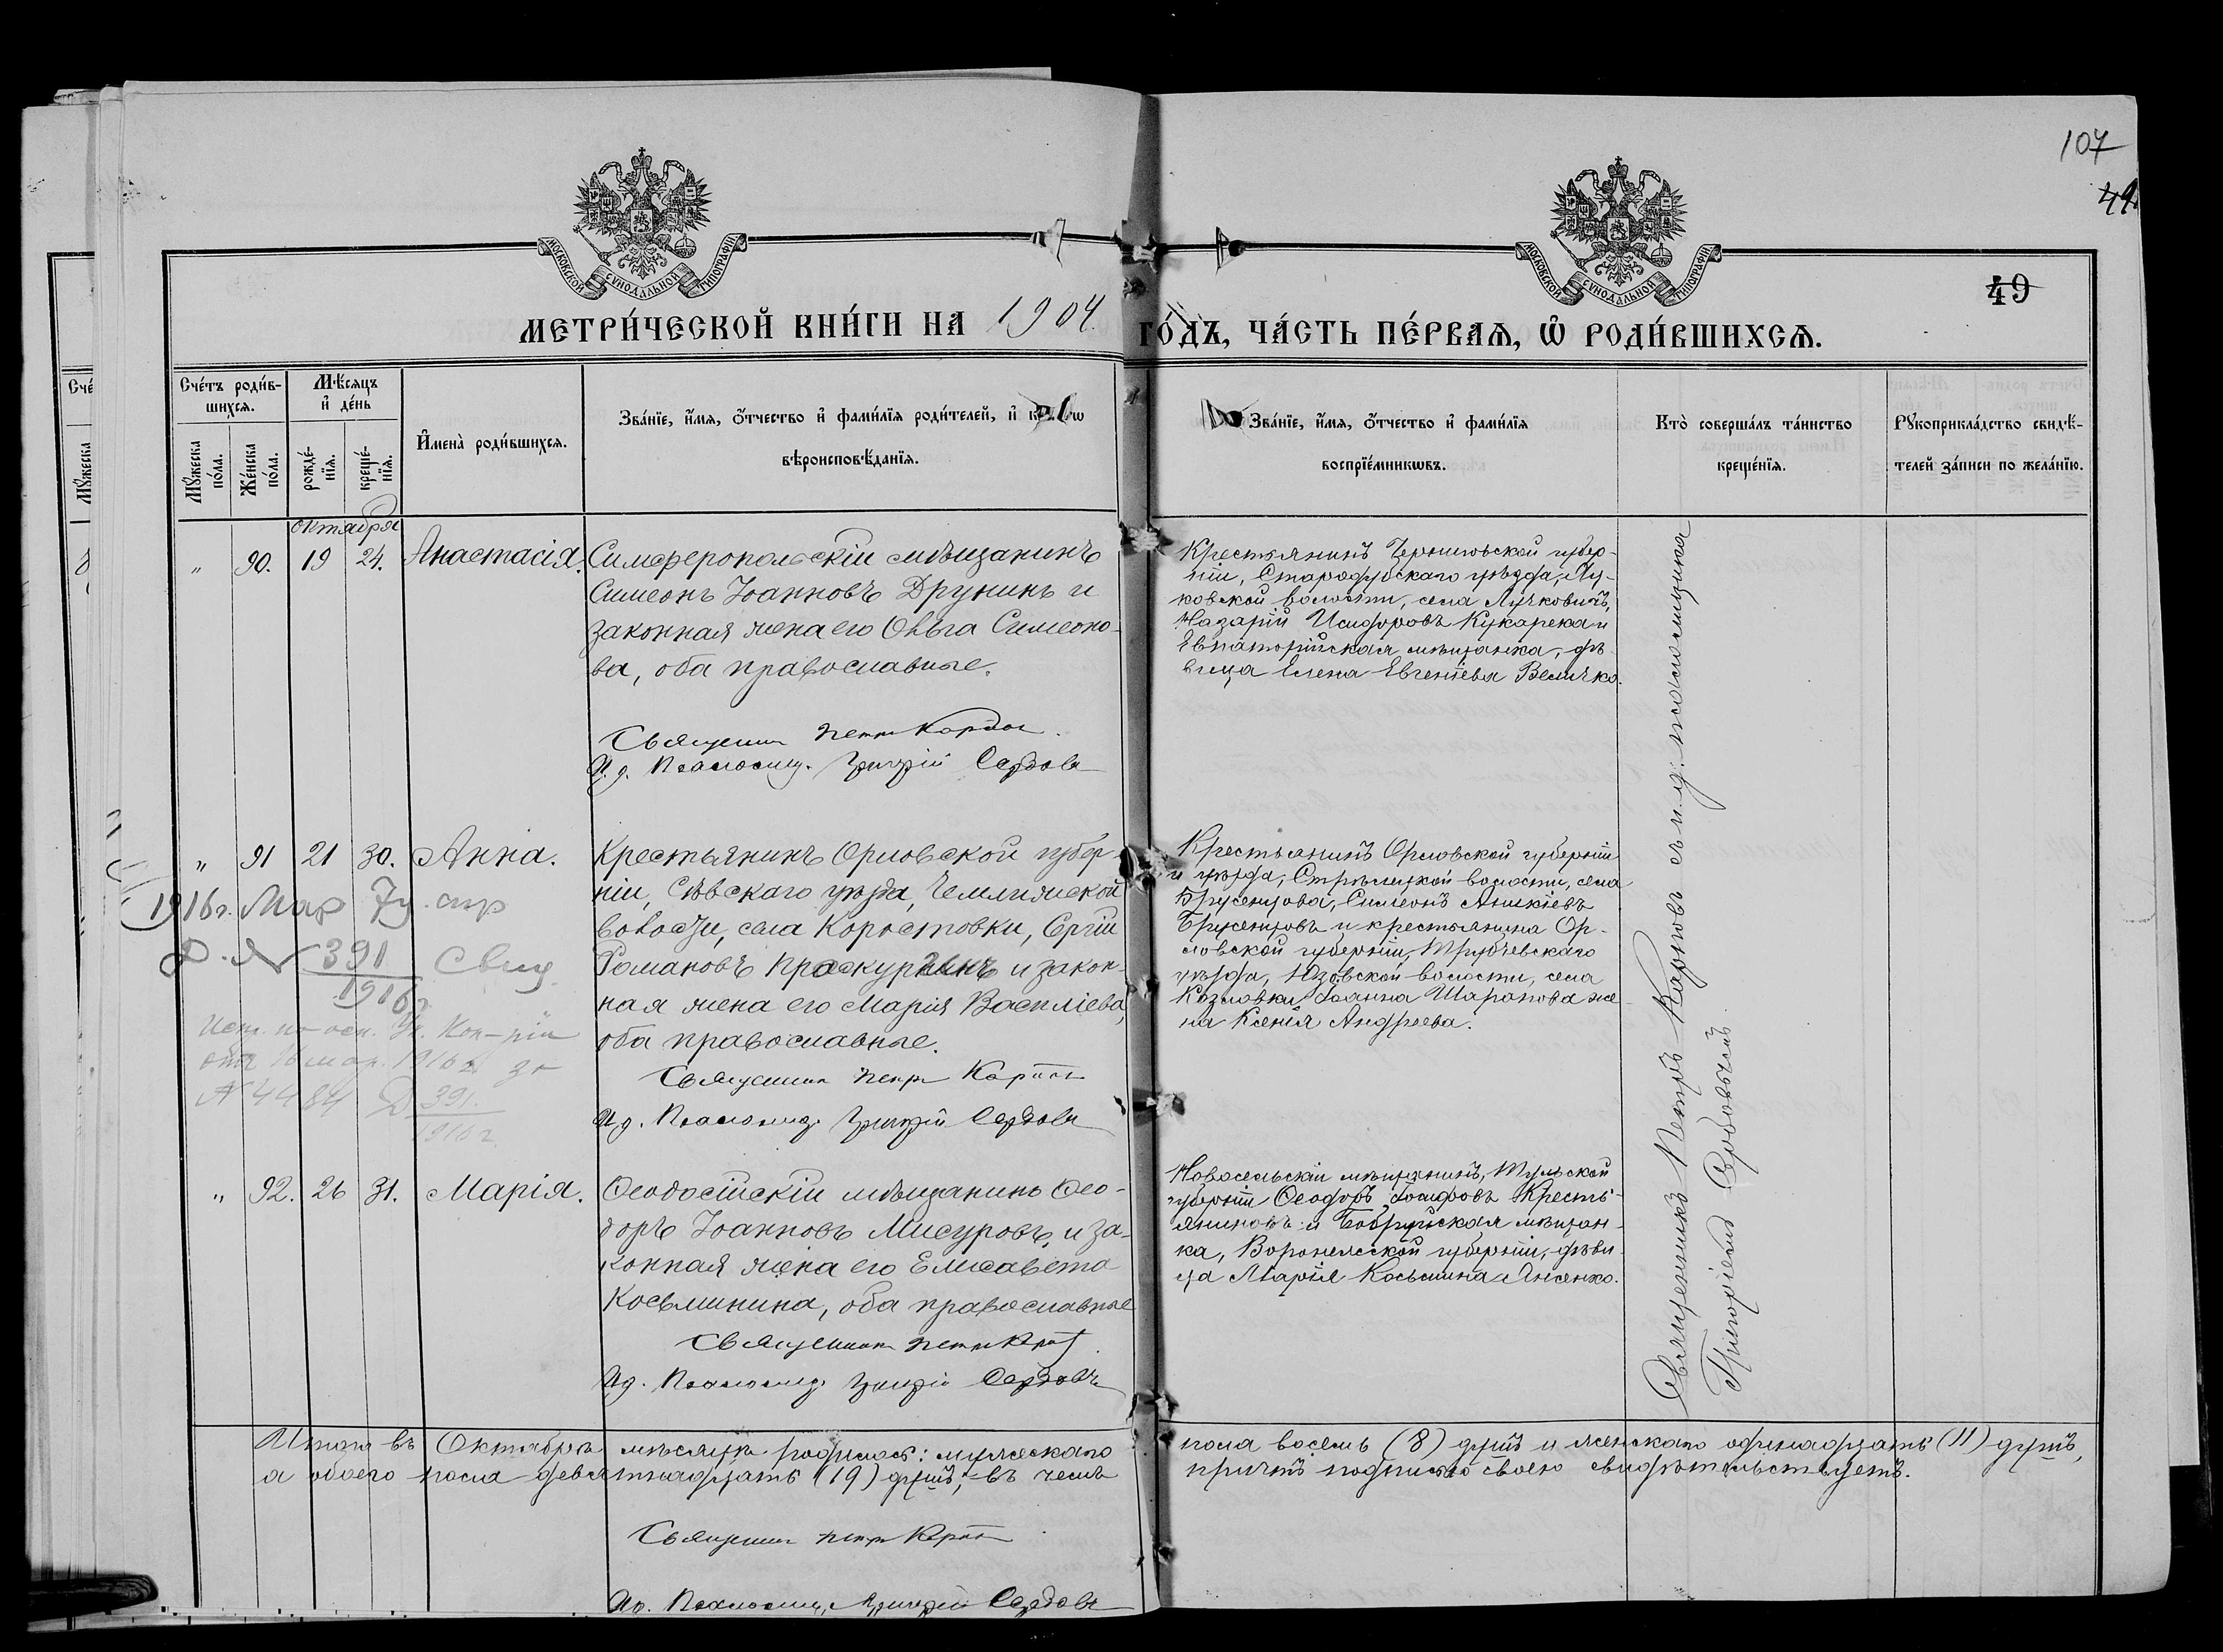 107
49
49
МОСКОВСКОЙ СУНОДАЛЬНОЙ ТИПОГРАФІИ
МОСКОВСКОЙ СУНОДАЛЬНОЙ ТИПОГРАФІИ
МЕТРИ́ЧЕСКОЙ КНИ́ГИ НА 1904 ГО́ДЪ, ЧА́СТЬ ПЕ́РВАЯ, Ѡ РОДИ́ВШИХСЯ.
Сче́тъ роди́в-
шихся.
Мѣ́сяцъ
и҆ де́нь
Мꙋ́жеска
по́ла.
Же́нска
по́ла.
рожде́-
нїя.
креще́-
нїя.
И҆мена̀ роди́вшихся.
Зва́нїе, и҆́мя, ѻ҆́тчество и҆ фами́лїя роди́телей, и҆
вѣроисповѣ́данїя.
Зва́нїе, и҆́мя, ѻ҆́тчество и҆ фами́лїя
воспрїе́мникѡвъ.
Кто̀ соверша́лъ та́инство
креще́нїя.
Рꙋкоприкла́дство свидѣ́-
телей за́писи по жела́нїю.
октября
„ 90. 19 24. Анастасія.
Симферопольскій мѣщанинъ
Симеонъ Іоанновъ Друнинъ и
законная жена его Ольга Симеоно-
ва, оба православные.
Священникъ Петръ Карповъ
И. д. Псаломщ. Григорій Сердовъ
Крестьянинъ Черниговской губер-
ніи, Стародубскаго уѣзда, Лу-
ковской волости, села Лучковичъ,
Назарій Исидоровъ Кукарека и
Евпаторійская мѣщанка, дѣ-
вица Елена Евгеніева Величко.
„ 91 21 30. Анна.
Крестьянинъ Орловской губер-
ніи, Сѣвскаго уѣзда, Чемлижской
волости, села Коростовки, Сргій
Романовъ Проскуринъ и закон-
ная жена его Марія Василіева,
оба православные.
Священникъ Петръ Карповъ
И. д. Псаломщ. Григорій Сердовъ
Крестьянинъ Орловской губерніи
и уѣзда, Стрѣлецкой волости, села
Брусенцова, Симеонъ
Брусенцовъ и крестьянина Ор-
ловской губерніи, Трубчевскаго
уѣзда, Юзовской волости, села
Козловки, Іоанна Шарапова же-
на Ксенія Андреева.
1916 г. Мар
391 Свид
1916 г.
1916 г. за
№ 4484 Д 391.
1916 г.
„ 92. 26 31. Марія.
Ѳеодосійскій мѣщанинъ Ѳео-
доръ Іоанновъ Мисуровъ и за-
конная жена его Елисавета
Косьминина, оба православные
Священникъ Петръ Карповъ
И. д. Псаломщ. Григорій Сердовъ
Новосельскій мѣщанинъ, Тульской
губерніи Ѳеодоръ Іосифовъ Кресть-
яниновъ и Бобруйская мѣщан-
ка, Воронежской губерніи, дѣви-
ца Марія Косьмина
Священникъ Петръ Карповъ съ и. д. псаломщика
Григоріемъ
Итого въ Октябрѣ мѣсяцѣ родилось: мужескаго пола восемь (8) душъ и женскаго одинадцать (11) душъ,
а обоего пола девятнадцать (19) душъ, въ чемъ причтъ подписью своею свидѣтельствуетъ.
Священникъ Петръ Карповъ
И. д. Псаломщ. Григорій Сердовъ